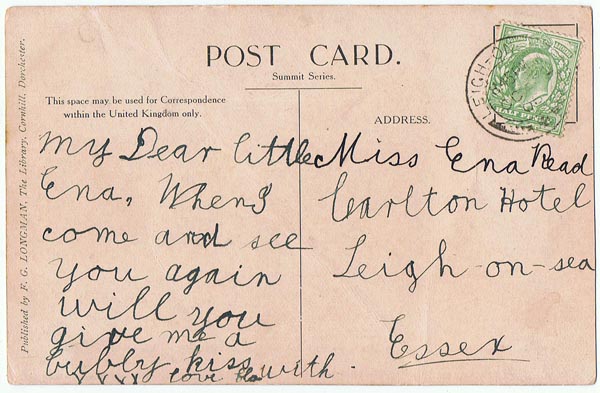 POST CARD.
Summit Series.
This space may be used for Correspondence
within the United Kingdom only.
ADDRESS.
Published by F. G. LONGMAN, The Library, Cornhill, Dorchester.
My Dear little
Ena, When I
come and see
you again
will you
give me a
bubby kiss
xxxx love with
Miss Ena Read
Carlton Hotel
Leigh-on-sea
Essex
LEIGH-O